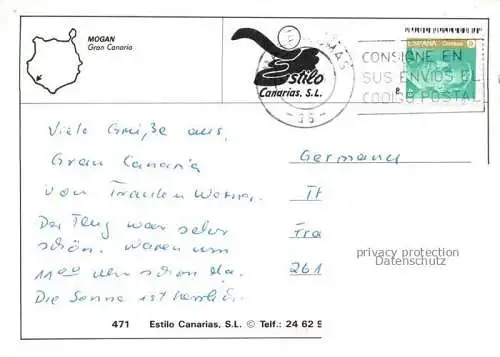 MOGAN
Gran Canaria
Estilo
Canarias, S.L.
ESPAÑA Correos
CONSIGNE EN
SUS ENVIOS EL
CODIGO POSTAL
Viele Grüße aus,
Gran Canaria
von Frauken Werner.
Der Flug war sehr
schön. Waren um
11⁰⁰ Uhr schon da.
Die Sonne ist herrlich.
Germany
Fra
261
privacy protection
Datenschutz
471 Estilo Canarias, S.L. © Telf.: 24 62 9